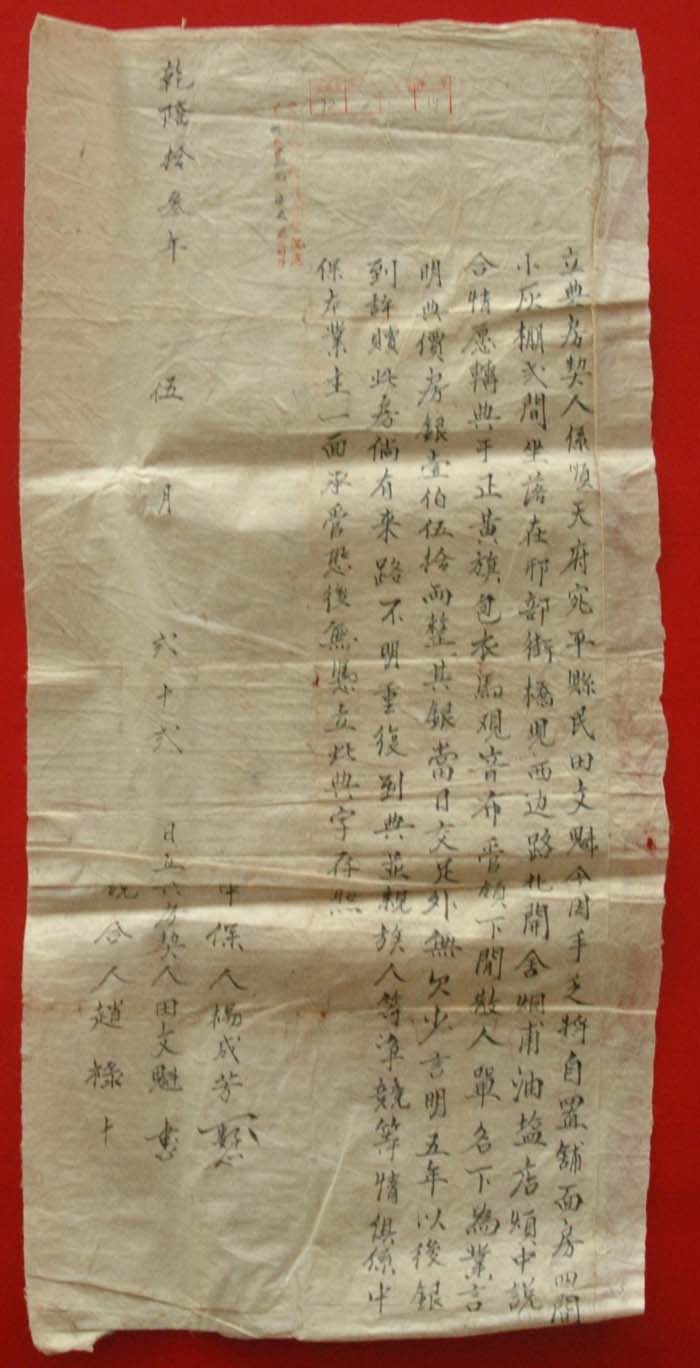 立典房契人係順天府宛平縣民田文魁今因手乏將自置舖面房四間
小灰棚弍間坐落在刑部街橋兒西边路北開舍烟甫油盐店煩中說
合情愿轉典于正黃旗包衣馮观音布管領下閒散人單名下為業言
明典價房銀壹伯伍拾両整其銀當日交足外無欠少言明五年以後銀
到許贖此房倘有來路不明重復到典並親族人等爭競等情俱係中
保右業主一面承管恐後無憑立此典字存照
中保人楊成芳
乾隆拾叁年 伍 月 弍十弍 日立典房契人田文魁 書
說合人趙祿 十